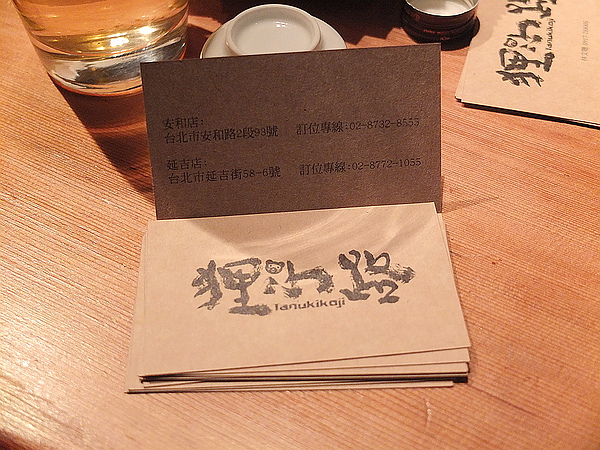 安和店:
台北市安和路2段93號 訂位專線:02-8732-8555
延吉店:
台北市延吉街58-6號 訂位專線:02-8772-1055
狸小路
Tanukikoji
狸小路
Tanukikoji